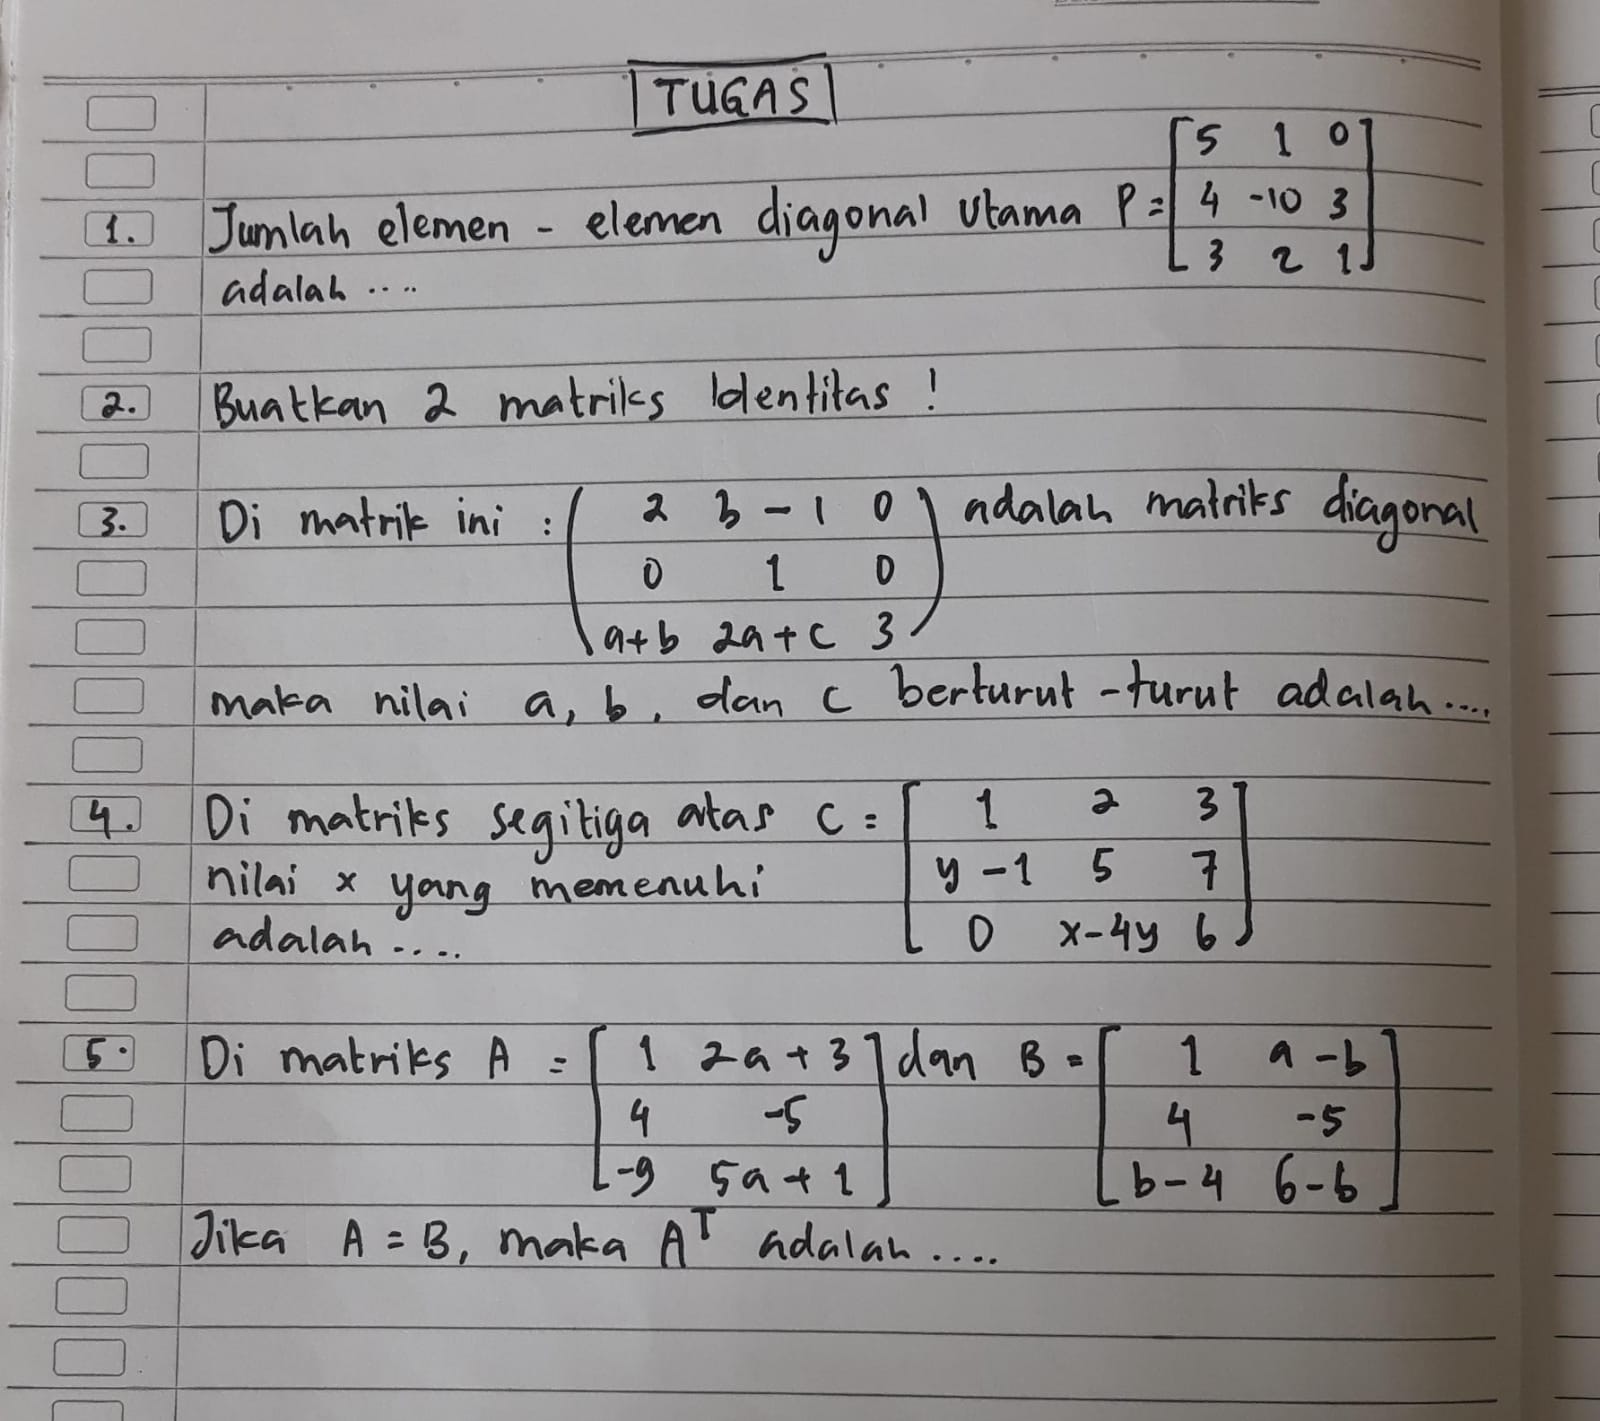 TUGAS
1. Jumlah elemen - elemen diagonal Utama P = [5 1 0
4 -10 3
3 2 1]
adalah ....
2. Buatkan 2 matriks Identitas !
3. Di matrik ini : (2 b-1 0
0 1 0
a+b 2a+c 3) adalah matriks diagonal
maka nilai a, b, dan c berturut-turut adalah....
4. Di matriks segitiga atas C = [1 2 3
y-1 5 7
0 x-4y 6]
nilai x yang memenuhi
adalah ....
5. Di matriks A = [1 2a+3
4 -5
-9 5a+1] dan B = [1 a-b
4 -5
b-4 6-b]
Jika A = B, maka Aᵀ adalah ....